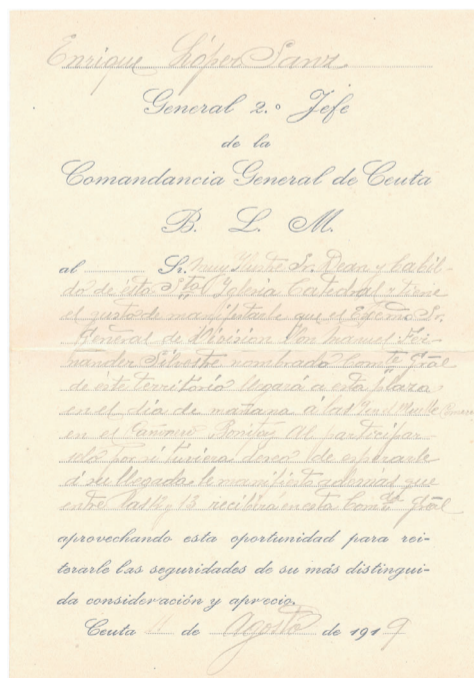 Enrique López Sanz
General 2.º Jefe
de la
Comandancia General de Ceuta
B. L. M.
al Sr. Muy Ilustre Sr. Dean y Cabil-
do de esta Sta Iglesia Catedral y tiene
el gusto de manifestarle que el Excmo Sr.
General de Division Don Manuel Fer-
nandez Silvestre nombrado Comte Gral
de este territorio llegará a esta plaza
en el dia de mañana á las
en el Cañonero Bonifaz Al participar-
selo por si tuviera deseo de esperarle
á su llegada le manifiesto además que
entre y 13 recibirá en esta Comª Gral
aprovechando esta oportunidad para rei-
terarle las seguridades de su más distingui-
da consideración y aprecio.
Ceuta 11 de Agosto de 1919